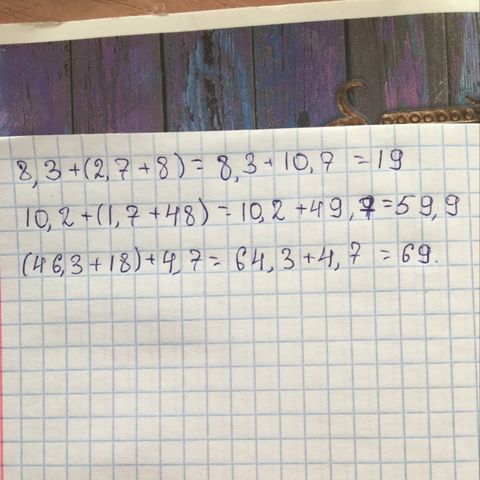 8,3+(2,7+8)=8,3+10,7=19
10,2+(1,7+48)=10,2+49,7=59,9
(46,3+18)+4,7=64,3+4,7=69.